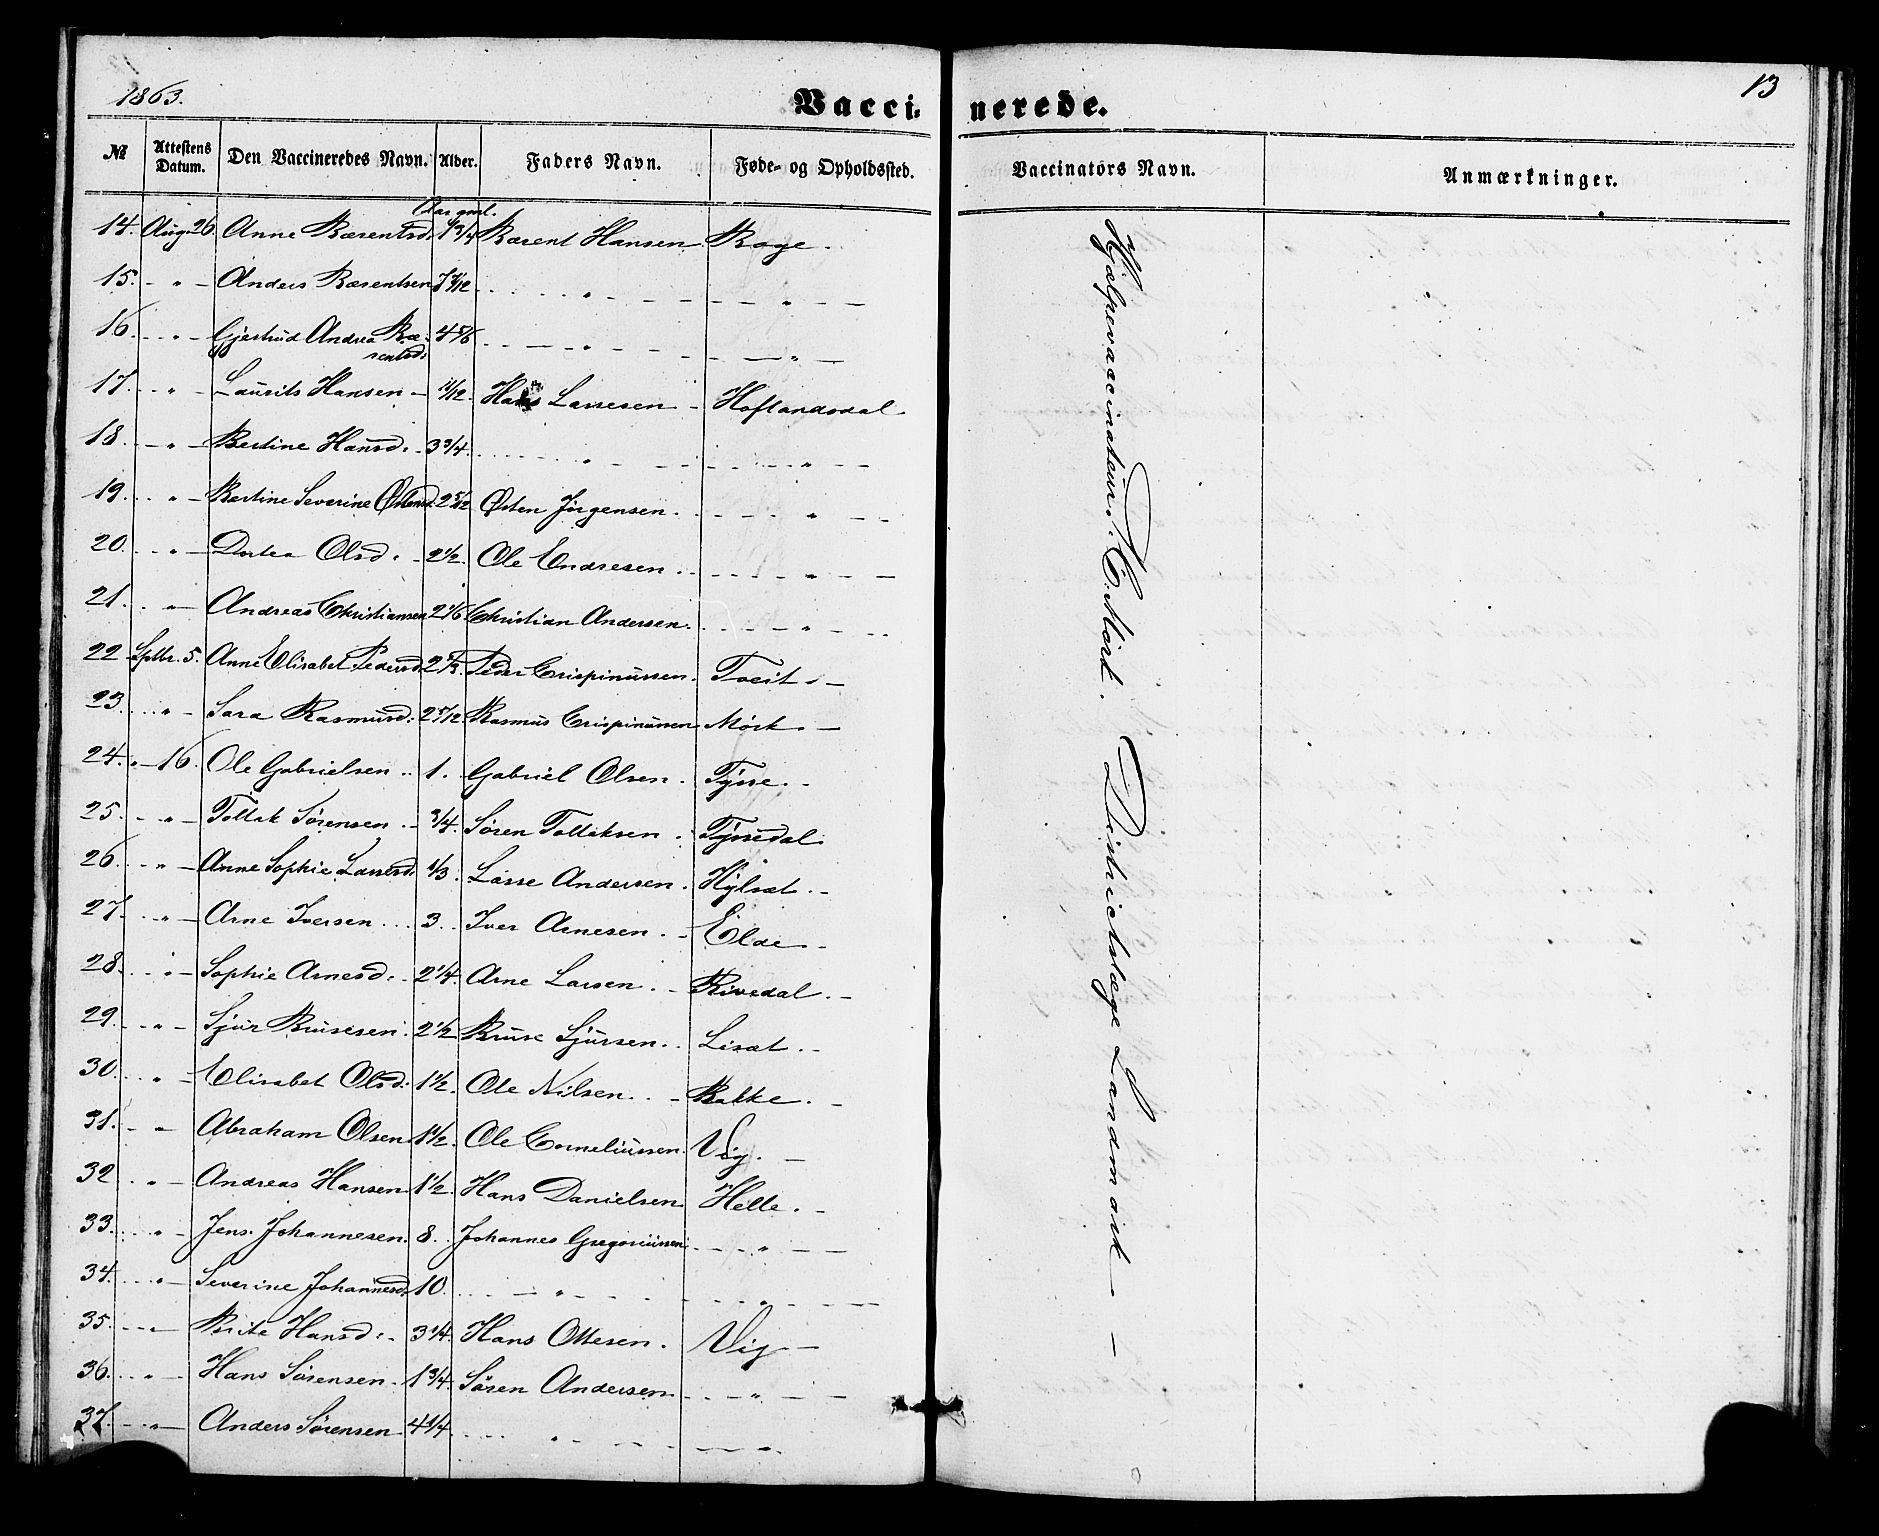 1863.
13
Vaccinerede.
№ Attestens Datum. Den Vaccineredes Navn. Alder. Faders Navn. Føde- og Opholdssted. Vaccinators Navn. Anmærkninger.
Aar gml.
14. Aug. 26. Anne Bærentsd. 1 3/4 Bærent Hansen Bøge.
15. - " - Anders Bærentsen 7 - " - - " -
16. - " - Gjertrud Andrea Bæ-
rentsd. 4 5/6 - " - - " -
17. - " - Laurits Hansen - 11/12. Hans Larsesen - Hoflandsdal
18. - " - Bertine Hansd. - 3 3/4. - " - - " -
19. - " - Bertine Severine Østensd. 2 5/12 Østen Jörgensen. - " -
20. - " - Dortea Olsd. - 2 1/2. Ole Endresen. - " -
21. - " - Andreas Christiansen 2 1/6 Christian Andersen. - " -
22 Sptbr. 5. Anne Elisabet Pedersd. 2 2/3. Peder Crispinussen. Tveit. -
23. - " - Sara Rasmusd. 2 5/12. Rasmus Crispinussen Mörk. -
24. " - 16. Ole Gabrielsen .. 1. Gabriel Olsen. Tysse. -
25. - " - Tollak Sörensen .. 3/4. Sören Tollaksen. Tyssedal
26. - " - Anne Sophie Larsesd. 1/3. Lasse Andersen. Hylsæt. -
27. - " - Arne Iversen ... 3. Iver Arnesen. - Elde. -
28. - " - Sophie Arnesd. 2 1/4. Arne Larsen. - Rivedal. -
29. - " - Sjur Brusesen. 2 1/2 Bruse Sjursen. Lisæt. -
30. - " - Elisabet Olsd. 1 1/2. Ole Nilsen. - Bakke. -
31. - " - Abraham Olsen 1 1/2. Ole Corneliussen. Vig. -
32 - " - Andreas Hansen 1 1/2. Hans Danielsen Helle. -
33. - " - Jens Johannesen. 8. Johannes Gregoriussen - " -
34. - " - Severine Johannesd. 10. - " - - " -
35. - " - Brite Hansd. - 3 1/4. Hans Ottesen. Vig -
36. - " - Hans Sörensen - 1 3/4. Sören Andersen - " -
37. - " - Anders Sörensen 4 1/4 - " - - " -
Hjælpevaccinateur. C. Mörk. Districtslæge Landmark -